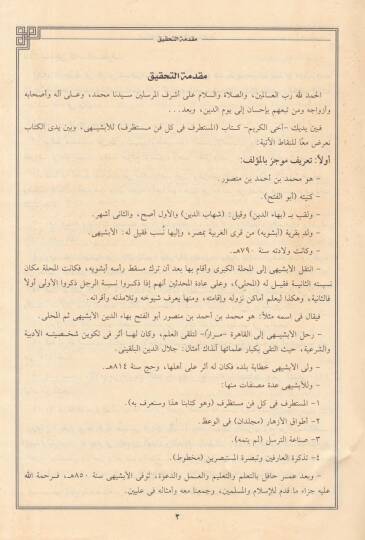 مقدمة التحقيق
مقدمة التحقيق
الحمد لله رب العالمين، والصلاة والسلام على أشرف المرسلين سيدنا محمد، وعلى آله وأصحابه
وأزواجه ومن تبعهم بإحسان إلى يوم الدين، وبعد...
فبين يديك -أخى الكريم- كتاب (المستطرف فى كل فن مستظرف) للأبشيهى، وبين يدى الكتاب
نعرض معًا للنقاط الآتية:
أولاً: تعريف موجز بالمؤلف:
- هو محمد بن أحمد بن منصور.
- كنيته (أبو الفتح).
- ولقب بـ (بهاء الدين) وقيل: (شهاب الدين) والأول أصح، والثانى أشهر.
- ولد بقرية (أبشويه) من قرى الغربية بمصر، وإليها نُسب فقيل له: الأبشيهى.
- وكانت ولادته سنة ٧٩٠هـ.
- انتقل الأبشيهى إلى المحلة الكبرى وأقام بها بعد أن ترك مسقط رأسه أبشويه، فكانت المحلة مكان
نسبته الثانية فقيل له (المحلى)، وعلى عادة المحدثين أنهم إذا ذكروا نسبة الرجل ذكروا الأولى أولاً
فالثانية، وهكذا ليعلم أماكن نزوله وإقامته، ومنها يعرف شيوخه وتلامذته وأقرانه.
فيقال فى اسمه مثلاً: هو محمد بن أحمد بن منصور أبو الفتح بهاء الدين الأبشيهى ثم المحلى.
- رحل الأبشيهى إلى القاهرة -مرارًا- لتلقى العلم، وكان لهـا أثر فى تكوين شخصيته الأدبية
والشرعية، حيث التقى بكبار علمائها آنذاك أمثال: جلال الدين البلقينى.
- ولى الأبشيهى خطابة بلده فكان له أثر على أهلها، وحج سنة ٨١٤هـ.
- وللأبشيهى عدة مصنفات منها:
١- المستطرف فى كل فن مستظرف (وهو كتابنا هذا وسنعرف به).
٢- أطواق الأزهار (مجلدان) فى الوعظ.
٣- صناعة الترسل (لم يتمه).
٤- تذكرة العارفين وتبصرة المستبصرين (مخطوط).
- وبعد عمر حافل بالتعلم والتعليم والعمل والدعوة، توفى الأبشيهى سنة ٨٥٠هـ، فرحمة الله
عليه جزاء ما قدم للإسلام والمسلمين، وجمعنا معه وأمثاله فى عليين.
٣